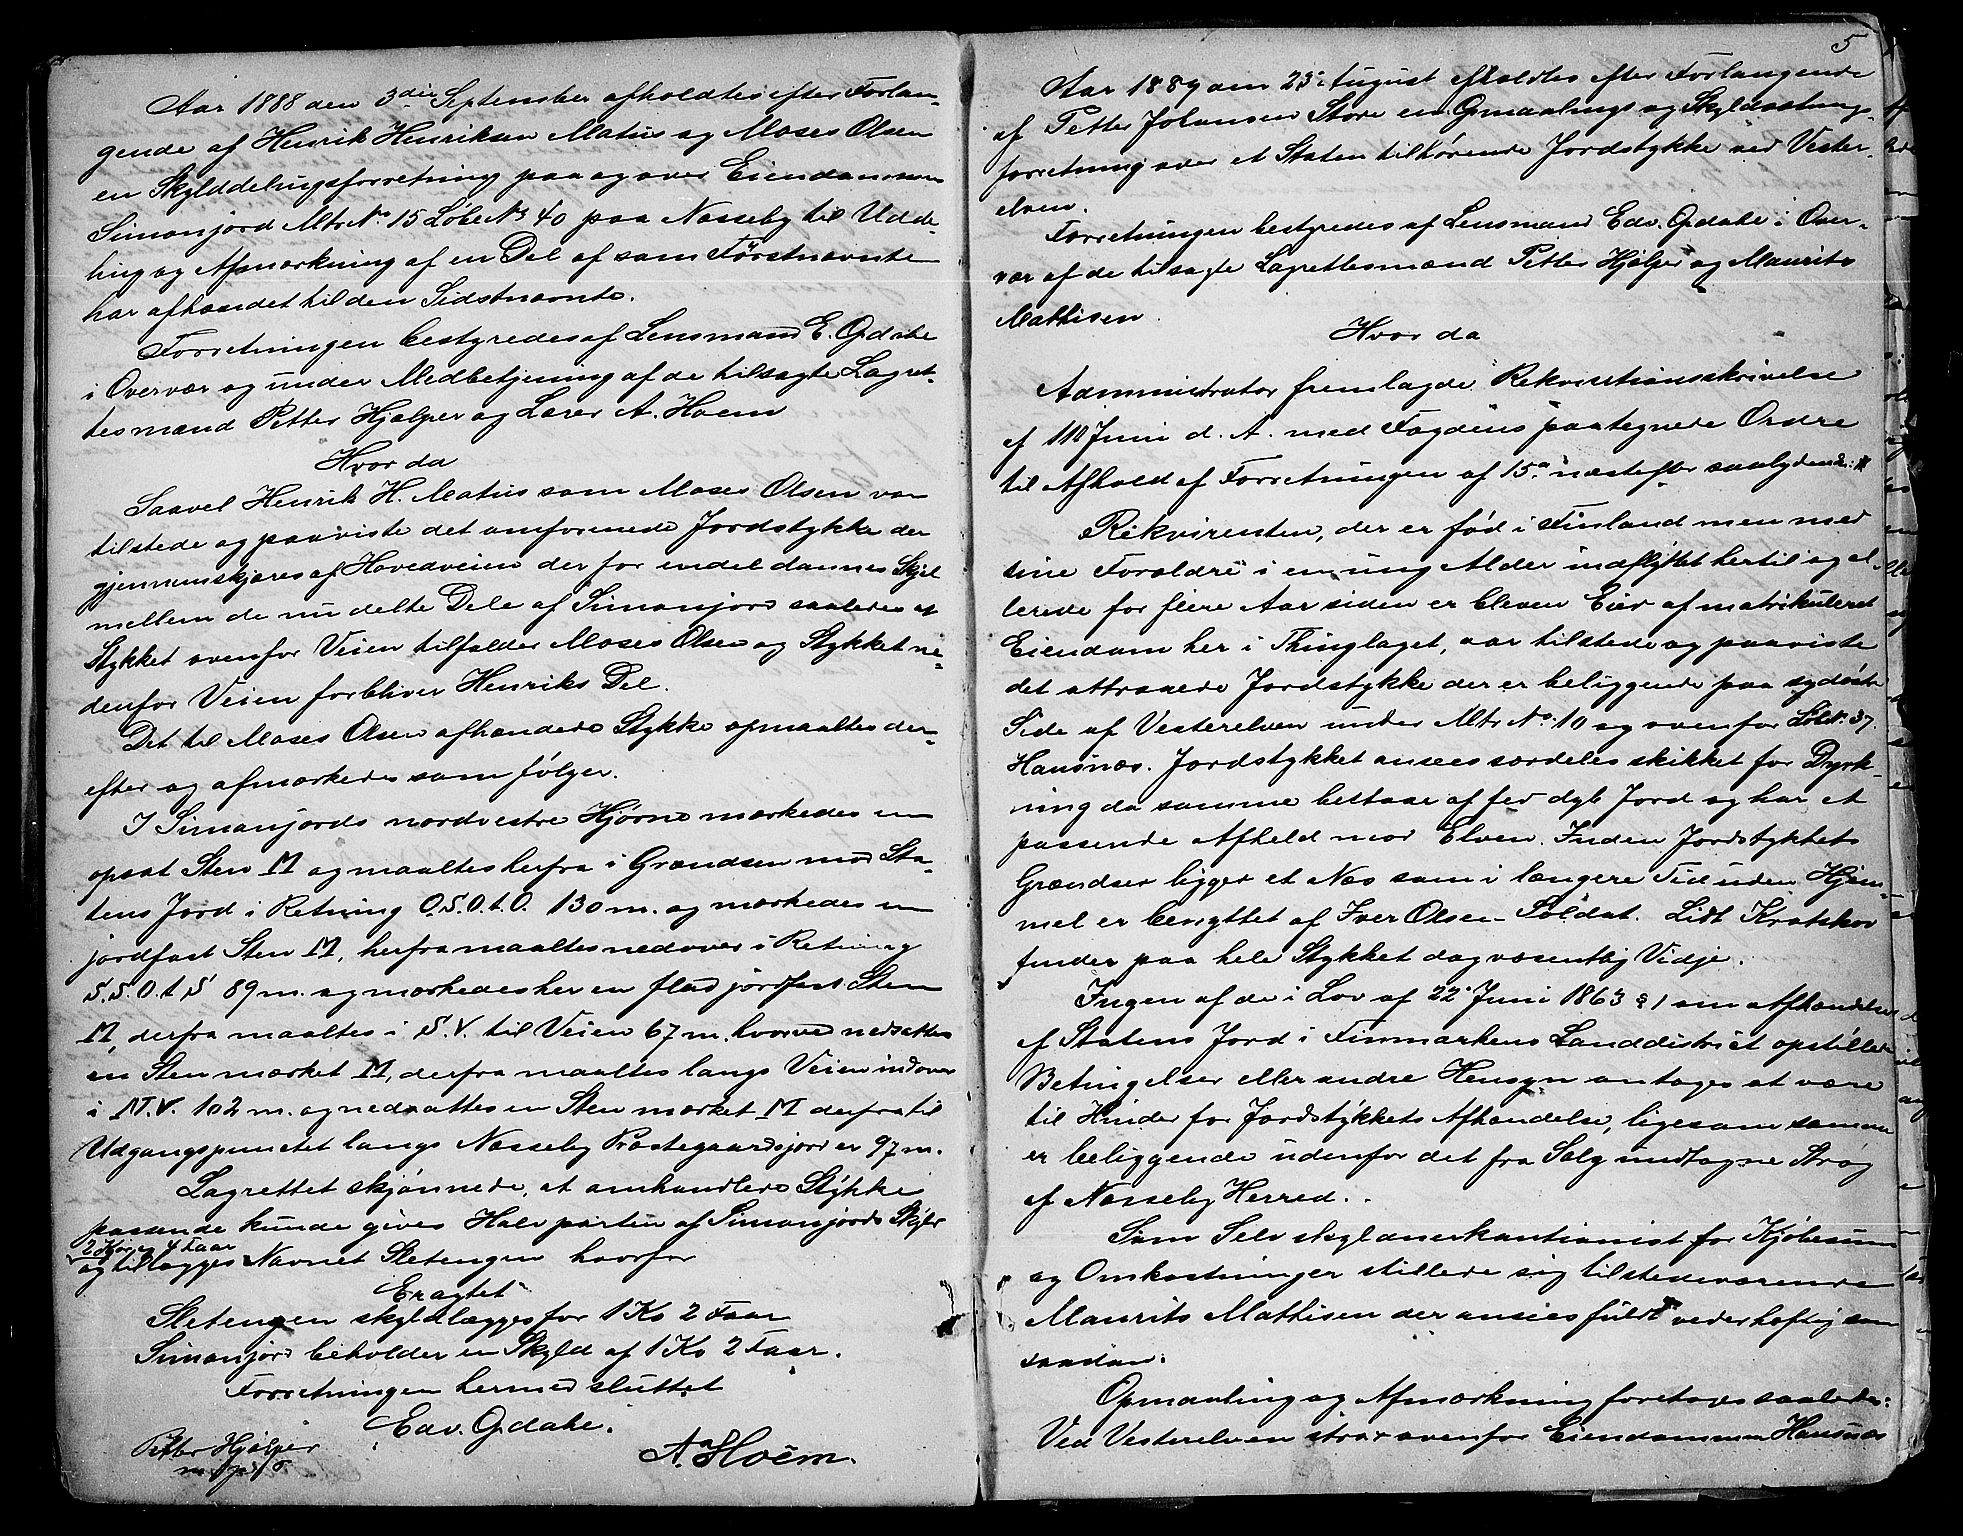 Aar 1888 den 3die September afholdtes efter Forlan-
gende af Henrik Henriksen Matus og Moses Olsen
en Skylddelingsforretning paa og over Eiendommen
Simonjord Mtr No 15 Løbe No 40 paa Næsseby til Udde-
ling og Afmærkning af en Del af som Førstnævnte
har afhændet til den Sidstnævnte.
Forretningen bestyredes af Lensmand E. Opdahl
i Overvær og under Medbetjening af de tilsagte Lagret-
tesmænd Petter Hjelper og Lærer A. Hoem
Hvor da
Saavel Henrik H. Matus som Moses Olsen var
tilstede og paaviste det omforenede Jordstykke der
gjennemskjæres af Hovedveien der for endel dannes Skjel
mellem de nu delte Dele af Simonjord saaledes at
Stykket ovenfor Veien tilfalder Moses Olsen og Stykket ne-
denfor Veien forbliver Henriks Del.
Det til Moses Olsen afhændede Stykke opmaaltes der-
efter og afmærkedes som følger.
I Simonjords nordvestre Hjørne mærkedes en
opsat Sten M og maaltes herfra i Grændsen mod Sta-
tens Jord i Retning O.S.O.t.O. 130 m. og mærkedes en
jordfast Sten M, herfra maaltes nedover i Retning
S.S.O.t.S 89 m. og mærkedes her en flad jordfast Sten
M, derfra maaltes i S.V. til Veien 67 m. hvorved nedsattes
en Sten mærket M, derfra maaltes langs Veien indover
i N.V. 102 m. og nedsattes en Sten mærket M derfra til
Udgangspunctet langs Næsseby Præstegaardsjord er 97 m.
Lagrettet skjønnede, at omhandlede Stykke
passende kunde gives Halvparten af Simonjords Skyld
2 Køer og 4 Faar
og tillægges Navnet Sletengen hvorfor
Eragtet
Sletengen skyldlægges for 1 Ko 2 Faar
Simonjord beholder en Skyld af 1 Ko 2 Faar.
Forretningen hermed sluttet
Edv. Opdahl.
Petter Hjelper
m. p. P.
A. Hoëm.
5
Aar 1889 den 23. August afholdtes efter Forlangende
af Petter Johansen Store en Opmaalings og Skyldsætnings-
forretning over et Staten tilhørende Jordstykke ved Vester-
elven.
Forretningen bestyredes af Lensmand Edv. Opdahl i Over-
vær af de tilsagte Lagrettesmænd Petter Hjelper og Maurits
Mathisen.
Hvor da
Administrator fremlagde Rekvisitionsskrivelse
af Juni d. A. med Fogdens paategnede Ordre
til Afhold af Forretningen af 15. næstefter saalydende:
Rekvirenten, der er fød i Finland men med
sine Forældre i en ung Alder indflyttet hertil og al-
lerede for flere Aar siden er bleven Eier af matrikuleret
Eiendom her i Thinglaget, var tilstede og paaviste
det attraaede Jordstykke der er beliggende paa sydøstre
Side af Vesterelven under Mtr No 10 og ovenfor Løb No 37.
Hansnæs. Jordstykket ansees særdeles skikket for Dyrk-
ning da samme bestaar af fed dyb Jord og har et
passende Afheld mod Elven. Inden Jordstykkets
Grændser ligger et Næs som i længere Tid uden Hjem-
mel er benyttet af Iver Olsen Soldat. Lidt Kratskov
findes paa hele Stykket dog væsentlig Vidje.
Ingen af de i Lov af 22. Juni 1863 § 1 om Afhændelse
af Statens Jord i Finmarkens Landdistrict opstillede
Betingelser eller andre Hensyn antages at være
til Hinder for Jordstykkets Afhændelse, ligesom samme
er beliggende udenfor det fra Salg undtagne Strøg
af Næsseby Herred.
Som Selvskyldnerkautionist for Kjøbesum
og Omkostninger stillede sig tilstedeværende
Maurits Mathisen der ansees fuldt vederheftig som
saadan.
Opmaaling og Afmærkning foretoges saaledes:
Ved Vesterelven strax ovenfor Eiendommen Hansnæs